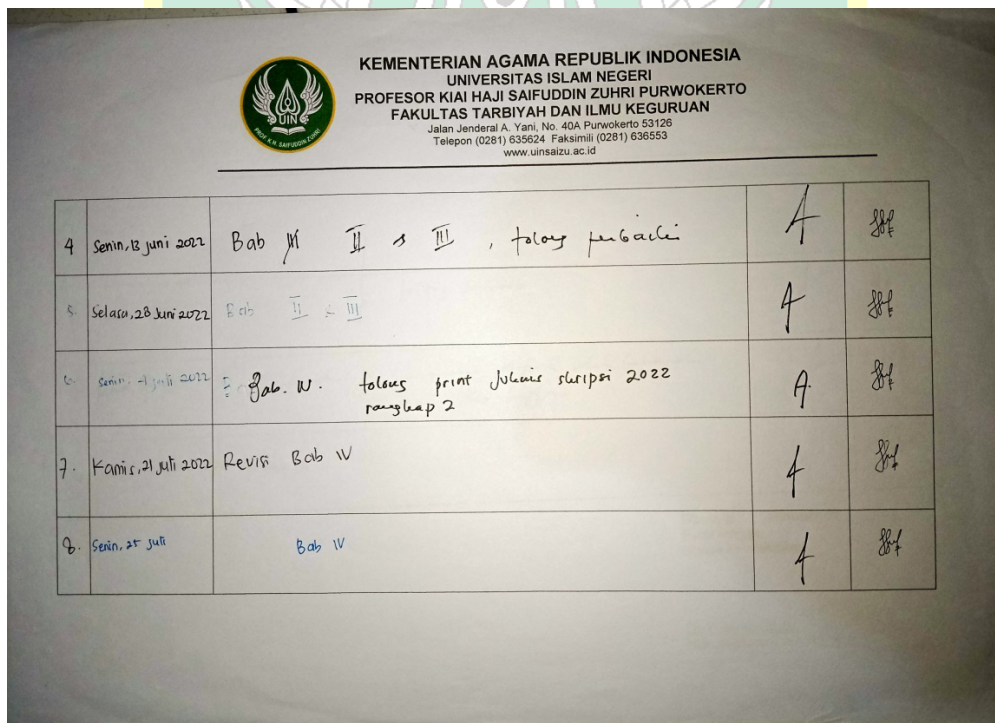 KEMENTERIAN AGAMA REPUBLIK INDONESIA
UNIVERSITAS ISLAM NEGERI
PROFESOR KIAI HAJI SAIFUDDIN ZUHRI PURWOKERTO
FAKULTAS TARBIYAH DAN ILMU KEGURUAN
Jalan Jenderal A. Yani, No. 40A Purwokerto 53126
Telepon (0281) 635624 Faksimili (0281) 636553
www.uinsaizu.ac.id
UIN
PROF. K.H. SAIFUDDIN ZUHRI
4 Senin, 13 juni 2022 Bab II & III, tolong perbaiki
5. Selasa, 28 Juni 2022 Bab II & III
6. Senin, juli 2022 Bab. IV. tolong print Juknis skripsi 2022
rangkap 2
7. Kamis, 21 juli 2022 Revisi Bab IV
8. Senin, 25 juli Bab IV